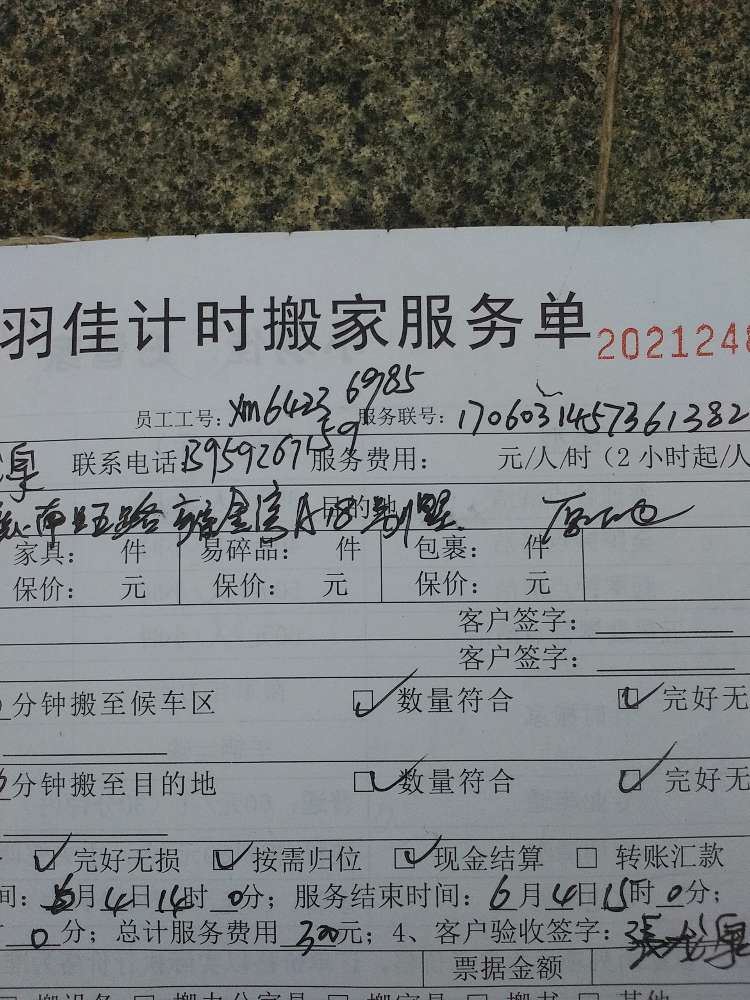 羽佳计时搬家服务单 2021248
员工工号: xm6423 6985 服务联号: 1706031457361382
泉 联系电话: 13959267159 服务费用: 元/人/时（2小时起/人
路 A18别墅 目的地 原地
家具: 件 易碎品: 件 包裹: 件
保价: 元 保价: 元 保价: 元
客户签字:
客户签字:
分钟搬至候车区 数量符合 完好无
分钟搬至目的地 数量符合 完好无
完好无损 按需归位 现金结算 转账汇款
间: 6月4日14时0分; 服务结束时间: 6月4日15时0分;
0分; 总计服务费用300元; 4、客户验收签字: 張龙泉
票据金额
搬设备 搬办公家具 搬家具 搬书 其他